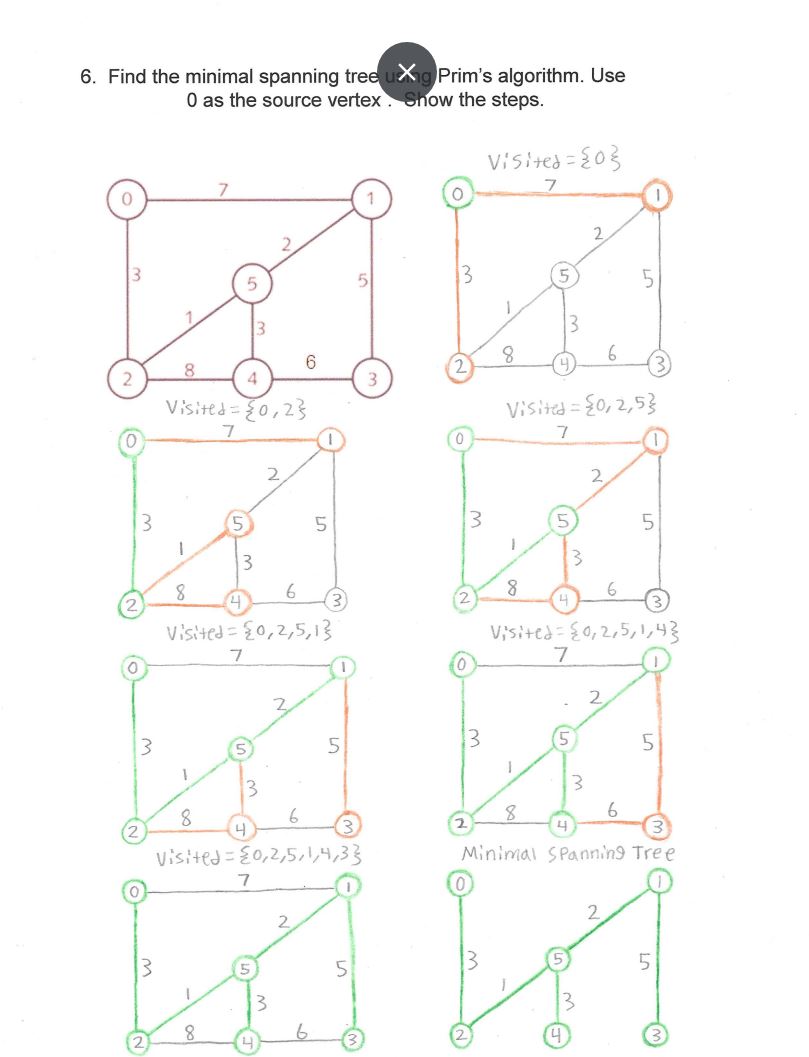 6. Find the minimal spanning tree using Prim's algorithm. Use
0 as the source vertex . Show the steps.
0 7 1
3 2 5
5
1 3
2 8 4 6 3
Visited = {0}
0 7 1
3 2 5
5
1 3
2 8 4 6 3
Visited = {0,2}
0 7 1
3 2 5
5
1 3
2 8 4 6 3
Visited = {0,2,5}
0 7 1
3 2 5
5
1 3
2 8 4 6 3
Visited = {0,2,5,1}
0 7 1
3 2 5
5
1 3
2 8 4 6 3
Visited = {0,2,5,1,4}
0 7 1
3 2 5
5
1 3
2 8 4 6 3
Visited = {0,2,5,1,4,3}
0 7 1
3 2 5
5
1 3
2 8 4 6 3
Minimal Spanning Tree
0 1
3 2 5
5
1 3
2 4 3